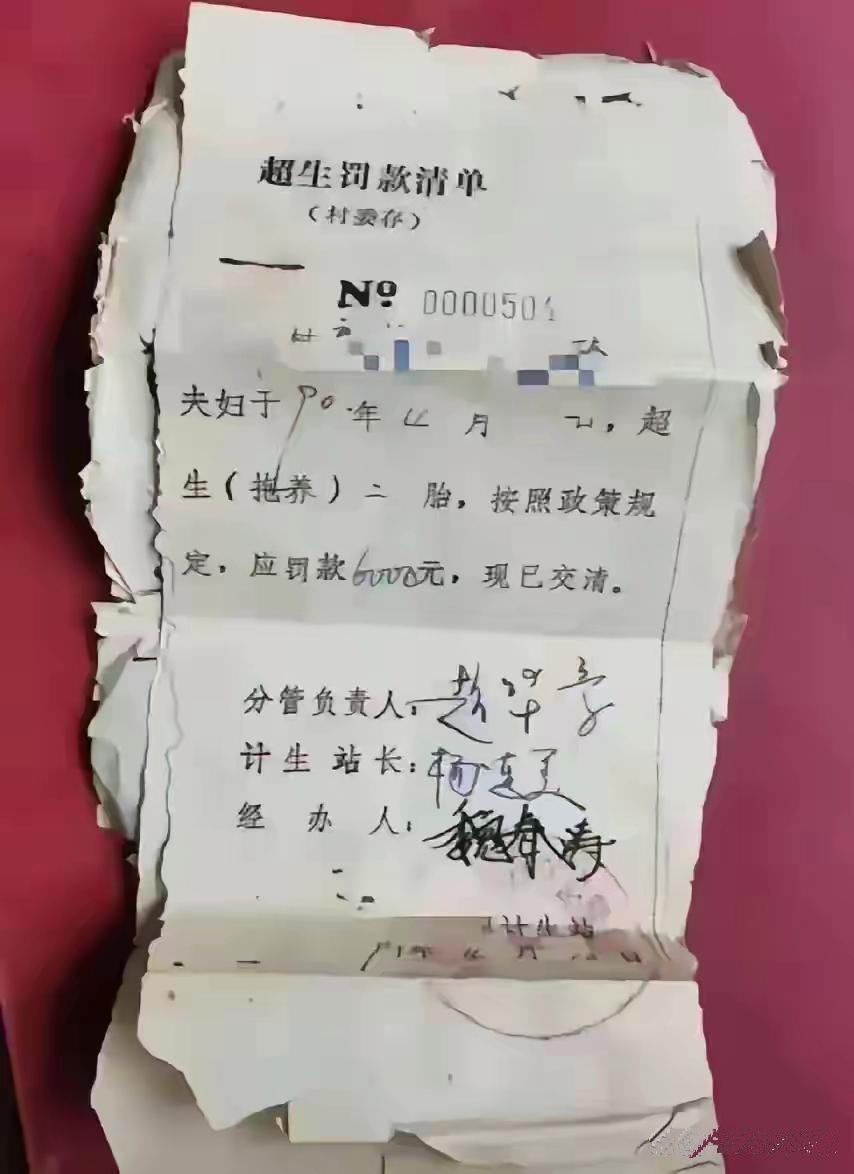 超生罚款清单
（村委存）
No 0000504
夫妇于90年 月 ，超
生（抱养）二 胎，按照政策规
定，应罚款6000元，现已交清。
分管负责人：赵
计生 站长：杨
经 办 人：魏春涛
计生站
91年 月 日